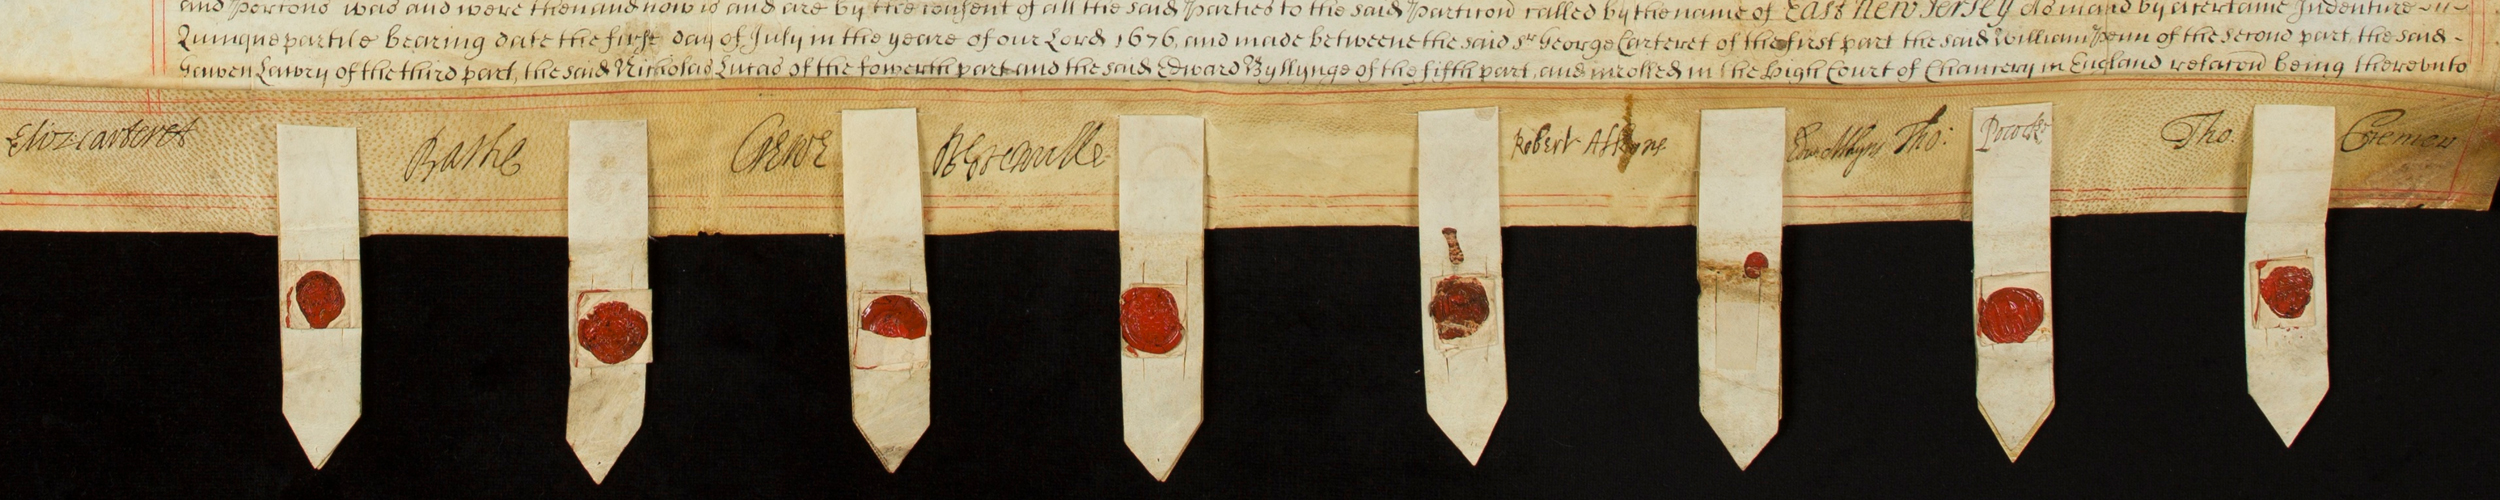 and Portons was and were then and now is and are by the consent of all the said Parties to the said Particon called by the name of East New Jersey As in and by a certaine Indenture
Quinquepartite bearing date the first day of July in the yeare of our Lord 1676, and made betweene the said Sr George Carteret of the first part the said William Penn of the second part, the said
Gawen Lawry of the third part, the said Nicholas Lucas of the fowerth part and the said Edward Byllynge of the fifth part, and inrolled in the high Court of Chancery in England relacon being thereunto
Eliz Carteret Bathe Crewe B Grenville Robert Atkyns Edw Atkyns Tho: Pocock Tho: Cremer